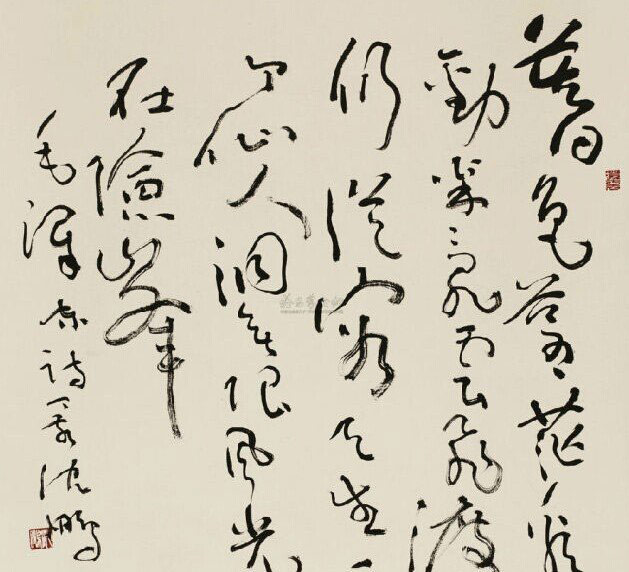 暮色苍茫看
劲松乱云飞渡
仍從容天生一
个仙人洞无限风光
在险峰
毛泽东诗 沈鹏